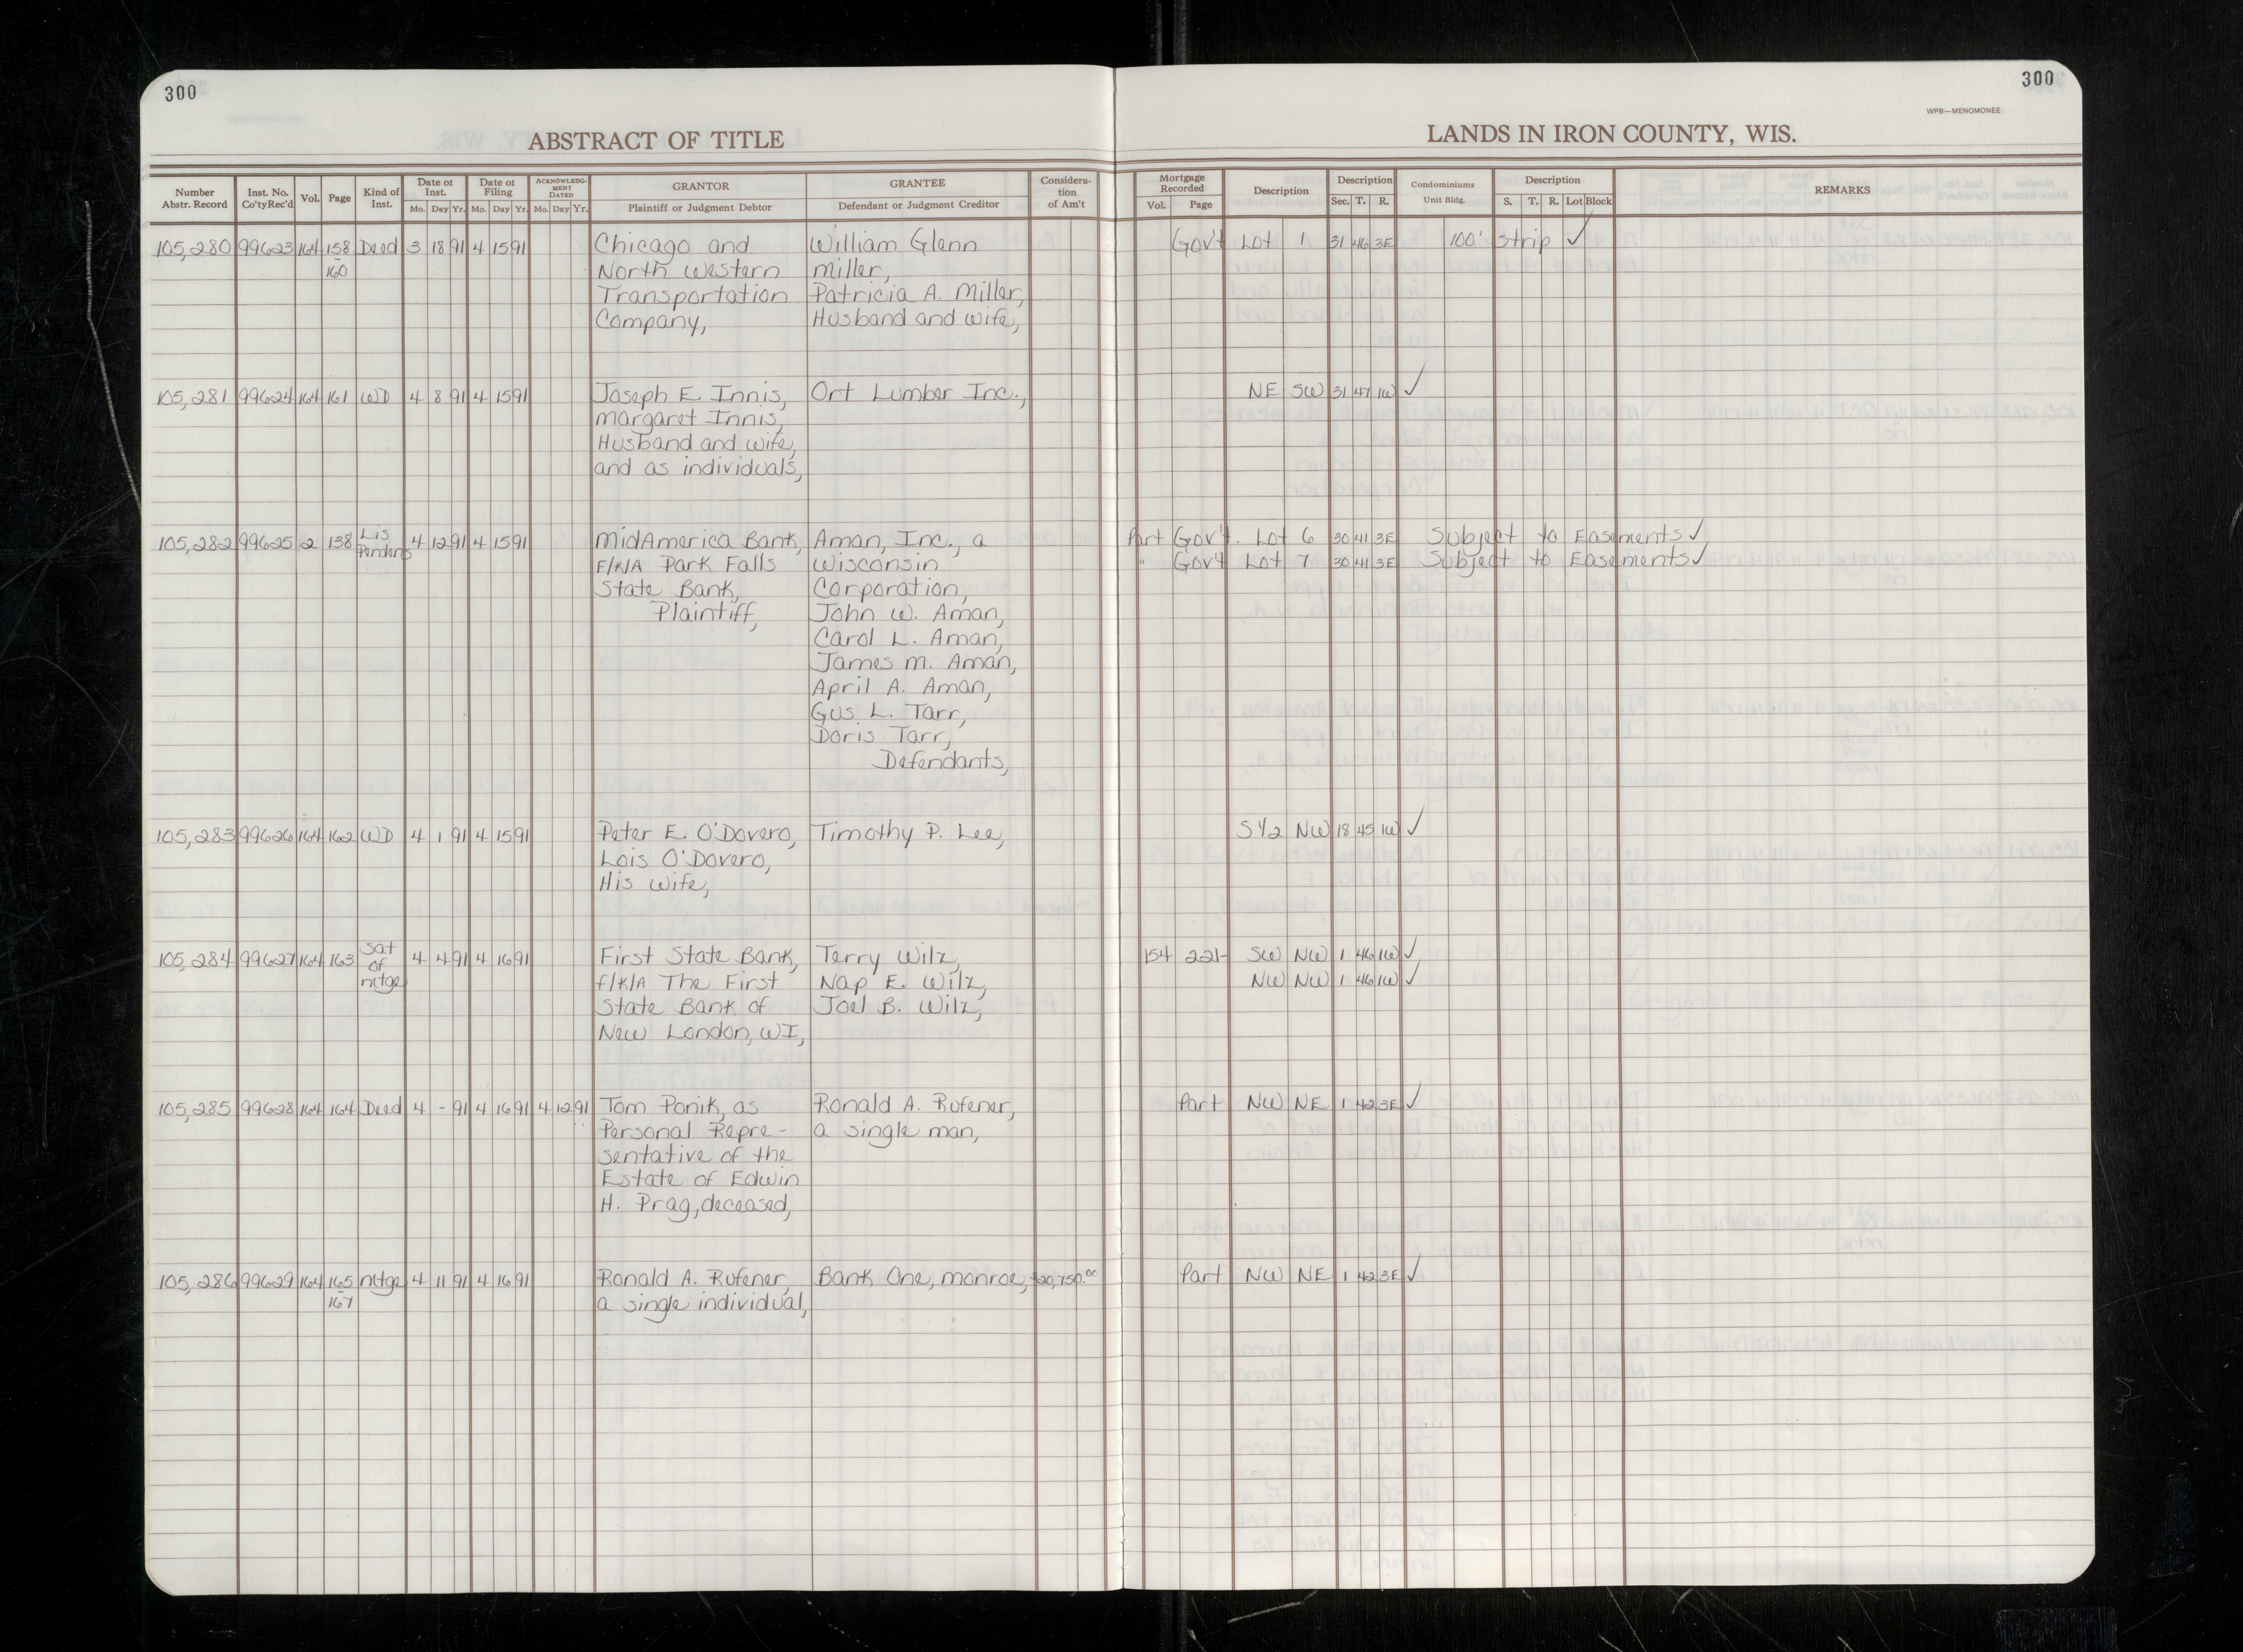 300
300
WPB—MENOMONEE
ABSTRACT OF TITLE
LANDS IN IRON COUNTY, WIS.
Number Abstr. Record | Inst. No. Co'ty Rec'd | Vol. | Page | Kind of Inst. | Date of Inst. Mo. Day Yr. | Date of Filing Mo. Day Yr. | ACKNOWLEDGMENT DATED Mo. Day Yr. | GRANTOR Plaintiff or Judgment Debtor | GRANTEE Defendant or Judgment Creditor | Consideration of Am't | Mortgage Recorded Vol. Page | Description | Description Sec. T. R. | Condominiums Unit Bldg. | Description S. T. R. Lot Block | REMARKS
105,280 99623 164 158 Deed 3 18 91 4 15 91 Chicago and William Glenn Gov't Lot 1 31 46 3E 100' strip ✓
-160 North Western Miller,
Transportation Patricia A. Miller,
Company, Husband and wife,
105,281 99624 164 161 WD 4 8 91 4 15 91 Joseph E. Innis, Ort Lumber Inc., NE SW 31 47 1W ✓
Margaret Innis,
Husband and wife,
and as individuals,
105,282 99625 2 138 Lis Pendens 4 12 91 4 15 91 MidAmerica Bank, Aman, Inc., a Part Gov't. Lot 6 30 41 3E Subject to Easements ✓
F/K/A Park Falls Wisconsin " Gov't Lot 7 30 41 3E Subject to Easements ✓
State Bank, Corporation,
Plaintiff, John W. Aman,
Carol L. Aman,
James M. Aman,
April A. Aman,
Gus L. Tarr,
Doris Tarr,
Defendants,
105,283 99626 164 162 WD 4 1 91 4 15 91 Peter E. O'Dovero, Timothy P. Lee, S 1/2 NW 18 45 1W ✓
Lois O'Dovero,
His Wife,
105,284 99627 164 163 Sat of mtge 4 4 91 4 16 91 First State Bank, Terry Wilz, 154 221- SW NW 1 46 1W ✓
f/k/A The First Nap E. Wilz, NW NW 1 46 1W ✓
State Bank of Joel B. Wilz,
New London, WI,
105,285 99628 164 164 Deed 4 - 91 4 16 91 4 12 91 Tom Ponik, as Ronald A. Rufener, Part NW NE 1 42 3E ✓
Personal Repre- a single man,
sentative of the
Estate of Edwin
H. Prag, deceased,
105,286 99629 164 165 mtge 4 11 91 4 16 91 Ronald A. Rufener, Bank One, Monroe, $20,750.00 Part NW NE 1 42 3E ✓
-167 a single individual,